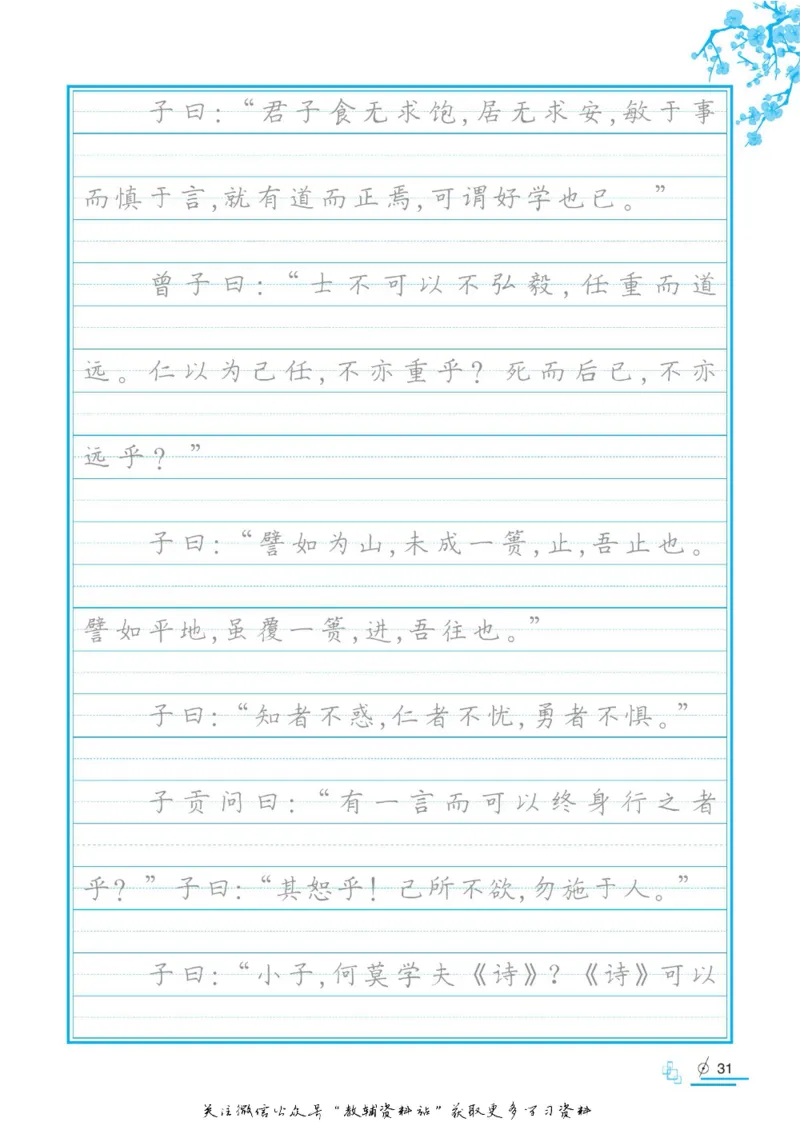 子曰：“君子食无求饱，居无求安，敏于事
而慎于言，就有道而正焉，可谓好学也已。”
曾子曰：“士不可以不弘毅，任重而道
远。仁以为己任，不亦重乎？死而后已，不亦
远乎？”
子曰：“譬如为山，未成一篑，止，吾止也。
譬如平地，虽覆一篑，进，吾往也。”
子曰：“知者不惑，仁者不忧，勇者不惧。”
子贡问曰：“有一言而可以终身行之者
乎？”子曰：“其恕乎！己所不欲，勿施于人。”
子曰：“小子，何莫学夫《诗》？《诗》可以
31
关注微信公众号“教辅资料站”获取更多学习资料